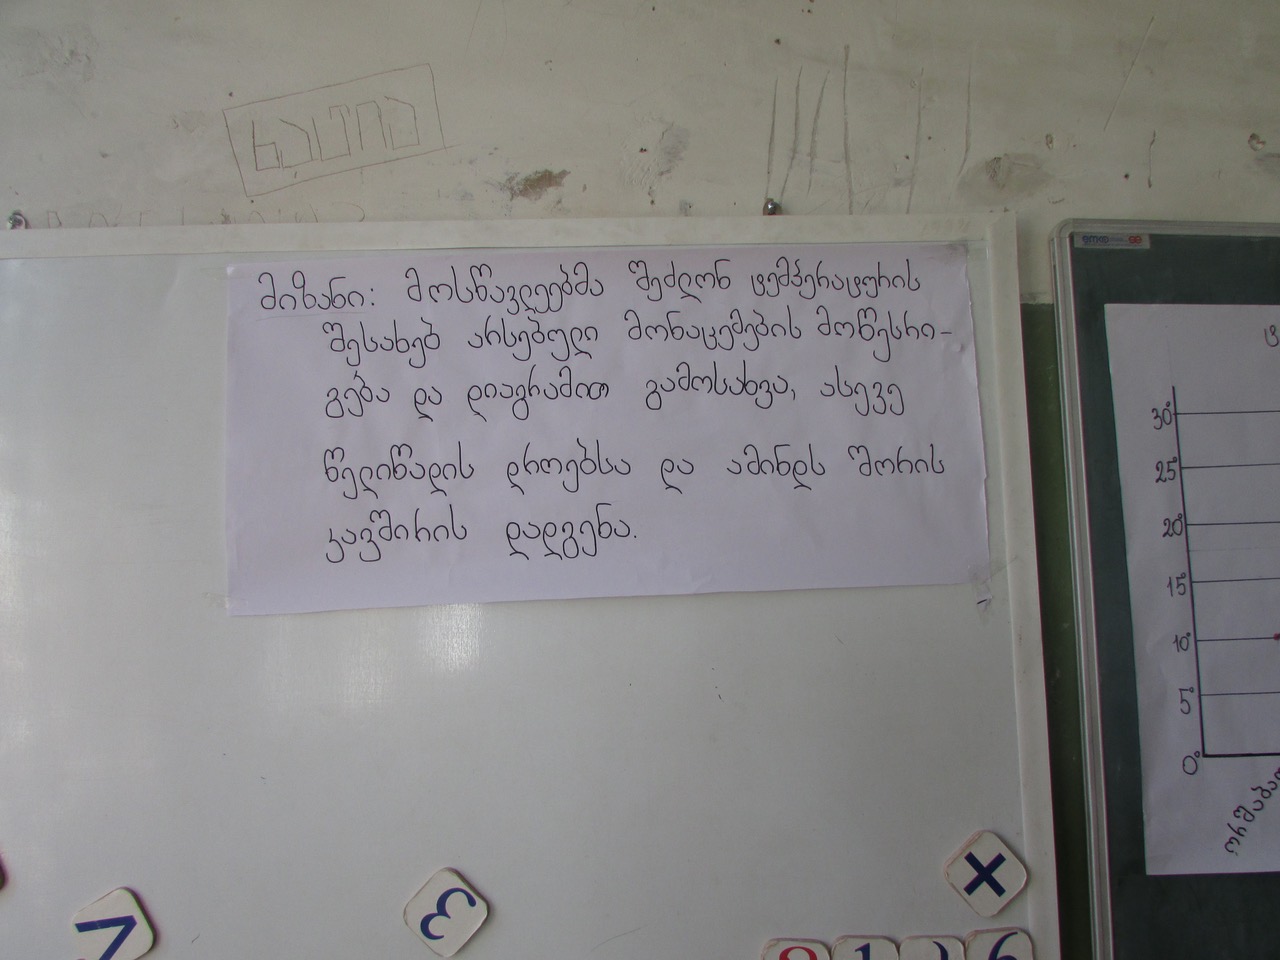 მიზანი: მოსწავლეებმა შეძლონ ტემპერატურის
შესახებ არსებული მონაცემების მოწესრი-
გება და დიაგრამით გამოსახვა, ასევე
წელიწადის დროებსა და ამინდს შორის
კავშირის დადგენა.
30°
25°
20°
15°
10°
5°
0°
ორშაბათ